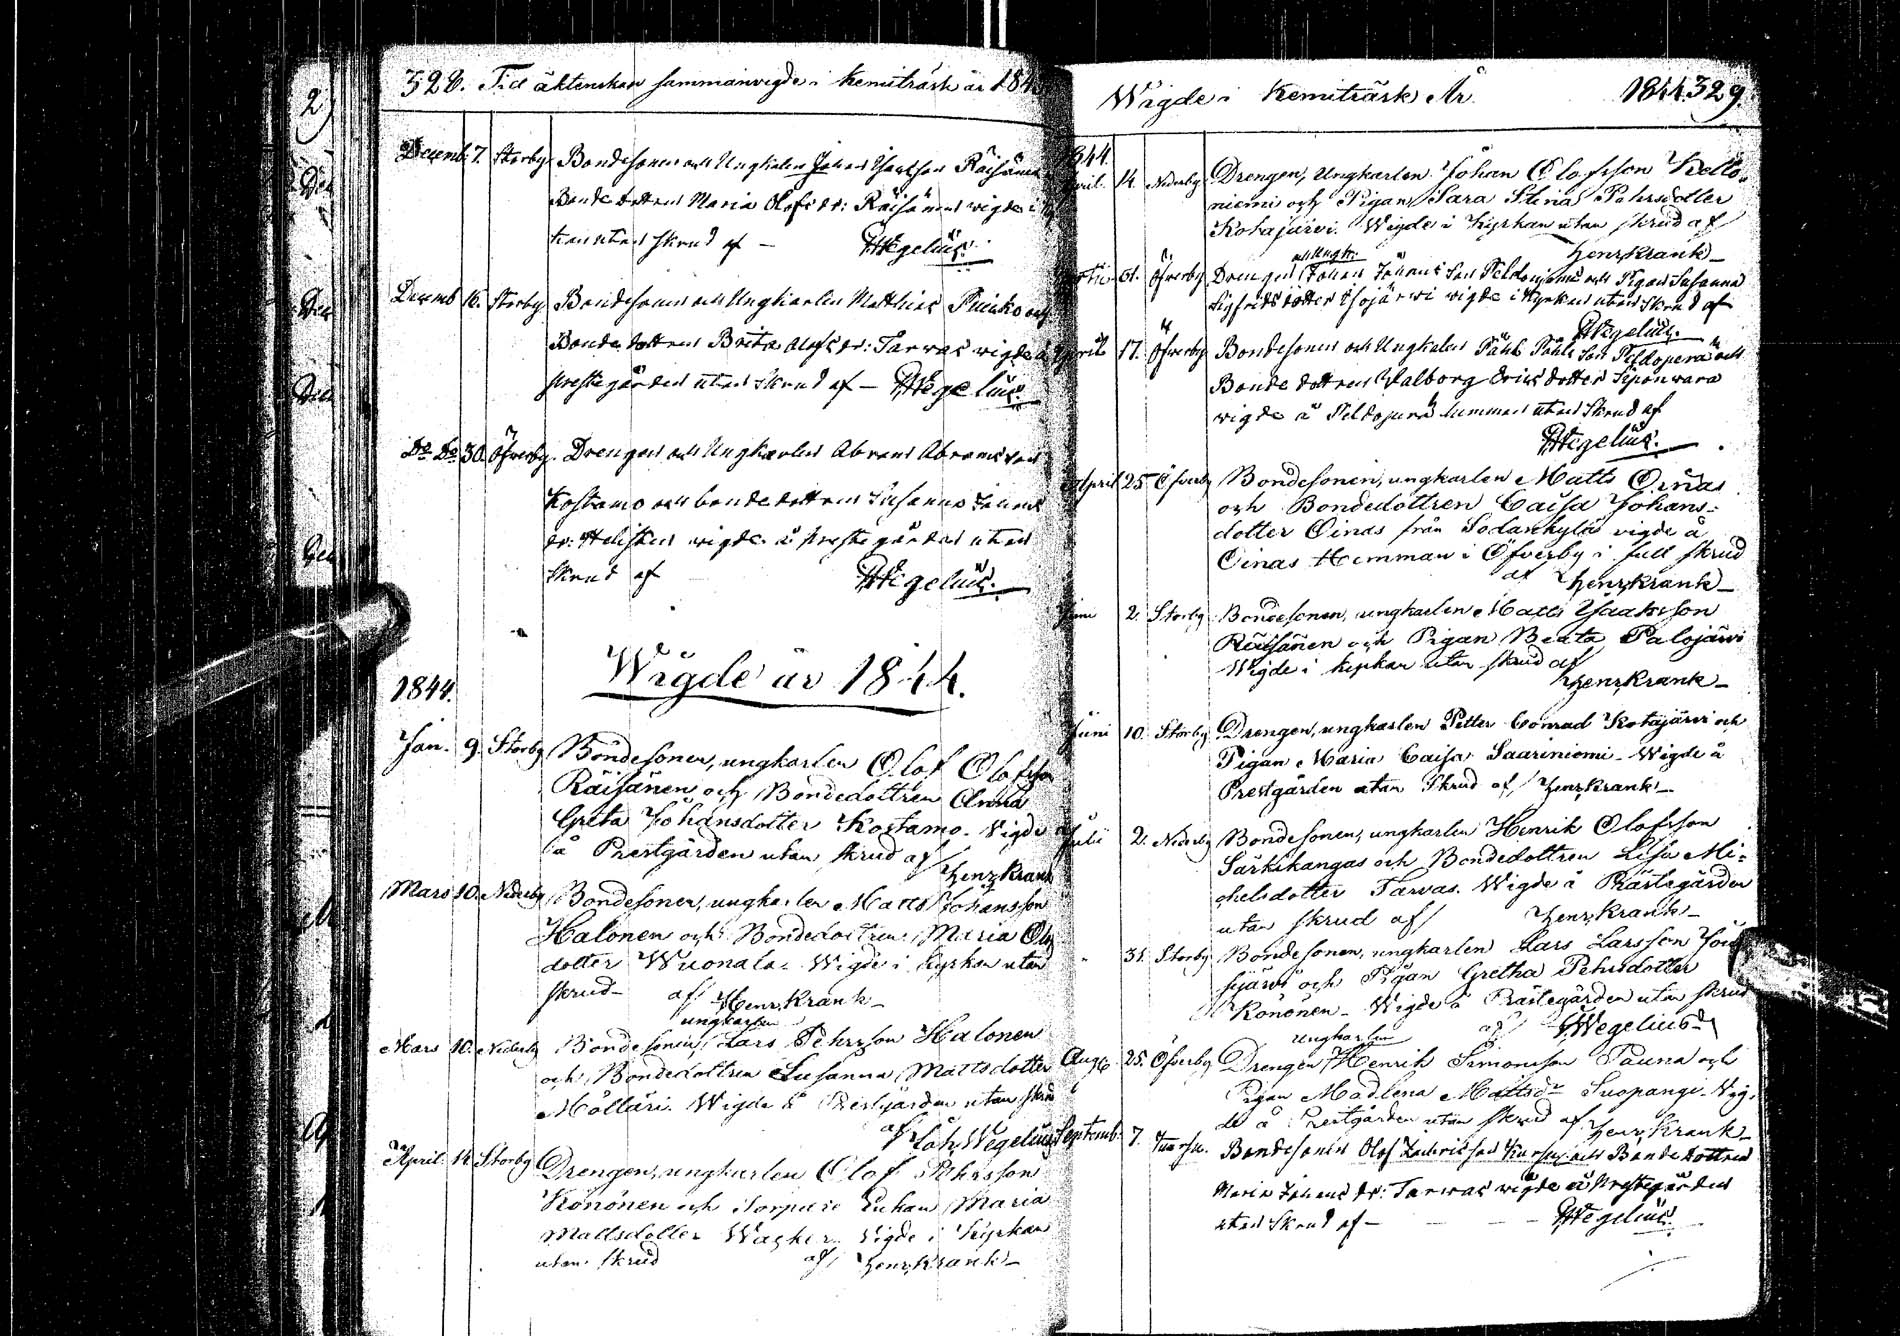 328. Till äktenskap sammanvigde i Kemiträsk år 184
Decemb. 7. Storby Bondesonen och Ungkarlen Johan Räisänen
Bondedottren Maria Olofsdr: Räisänen wigde i
utan skrud af — JWegelius.
Decemb 16. Storby Bondesonen och Ungkarlen Matthias Puikko och
Bondedottren Brita Olofsdr: Tarwas wigde å
prestegården utan skrud af — JWegelius.
Do Do 30. Öfverby. Drengen och Ungkarlen Abram Abramsson
Kostamo och bondedottren Susanna Johans
dr: wigde å prestegården utan
skrud af JWegelius.
Wigde år 1844.
1844.
Jan. 9. Storby Bondesonen, ungkarlen Olof Olofsson
Räisänen och Bondedottren Anna
Greta Johansdotter Kostamo. Vigde
å Prestgården utan skrud af
Henr. Krank
Mars 10. Nederby Bondesonen, ungkarlen Matts Johansson
Halonen och Bondedottren Maria Olofs
dotter Wuonala. Wigde i Kyrkan utan
skrud – af Henr. Krank –
ungkarlen
Mars 10. Nederby Bondesonen, Lars Pehrsson Halonen
och Bondedottren Susanna Mattsdotter
Mölläri. Wigde å Prestgården utan skrud
af Joh. Wegelius
April 14 Storby Drengen, ungkarlen Olof Pehrsson
Könönen och Enkan Maria
Mattsdotter Wigde i Kyrkan
utan skrud af Henr. Krank –
Wigde i Kemiträsk År 1844. 329.
1844.
April 14. Nederby Drengen, Ungkarlen Johan Olofsson Kello-
niemi och Pigan Sara Stina Pehrsdotter
Kotajärvi. Wigde i Kyrkan utan skrud af
Henr. Krank –
och Ungk.
Öfverby Drengen Johan Johansson Peldoniemi och Pigan Susanna
Sigfridsdotter Isojärwi wigde i Kyrkan utan skrud af
JWegelius.
April 17. Öfverby Bondesonen och Ungkarlen Påhl Påhlsson Peldoperä och
Bondedottren Walborg Ericsdotter
wigde å Peldoperä hemman utan skrud af
JWegelius.
April 25 Öfverby Bondesonen, ungkarlen Matts Oinas
och Bondedottren Caisa Johans-
dotter Oinas från Sodankylä vigde å
Oinas Hemman i Öfverby i full skrud
af Henr. Krank –
Juni 2. Storby Bondesonen, ungkarlen Matts Isaksson
Räisänen och Pigan Beata Palojärvi
Wigde i kyrkan utan skrud af
Henr. Krank –
Juni 10. Storby Drengen, ungkarlen Petter Conrad Kotajärvi och
Pigan Maria Caisa Saariniemi. Wigde å
Prestgården utan Skrud af Henr. Krank –
Julii 2. Nederby Bondesonen, ungkarlen Henrik Olofsson
Särkikangas och Bondedottren Lisa Mi-
chelsdotter Tarvas. Wigde å Prästegården
utan skrud af Henr. Krank –
" 31. Storby Bondesonen, ungkarlen Lars Larsson
och Pigan Gretha Pehrsdotter
Könönen – Wigde å Prästegården utan skrud
af JWegelius
ungkarlen
Aug. 25. Öfverby Drengen Henrik Simonsson Tauna och
Pigan Madlena Mattsdr Suopangi. Wig-
de å Prestgården utan skrud af Henr. Krank –
Septemb. 7. Bondesonen Olof och Bondedottren
Maria Johansdr: Tarwas wigde å Prestegården
utan skrud af — JWegelius.